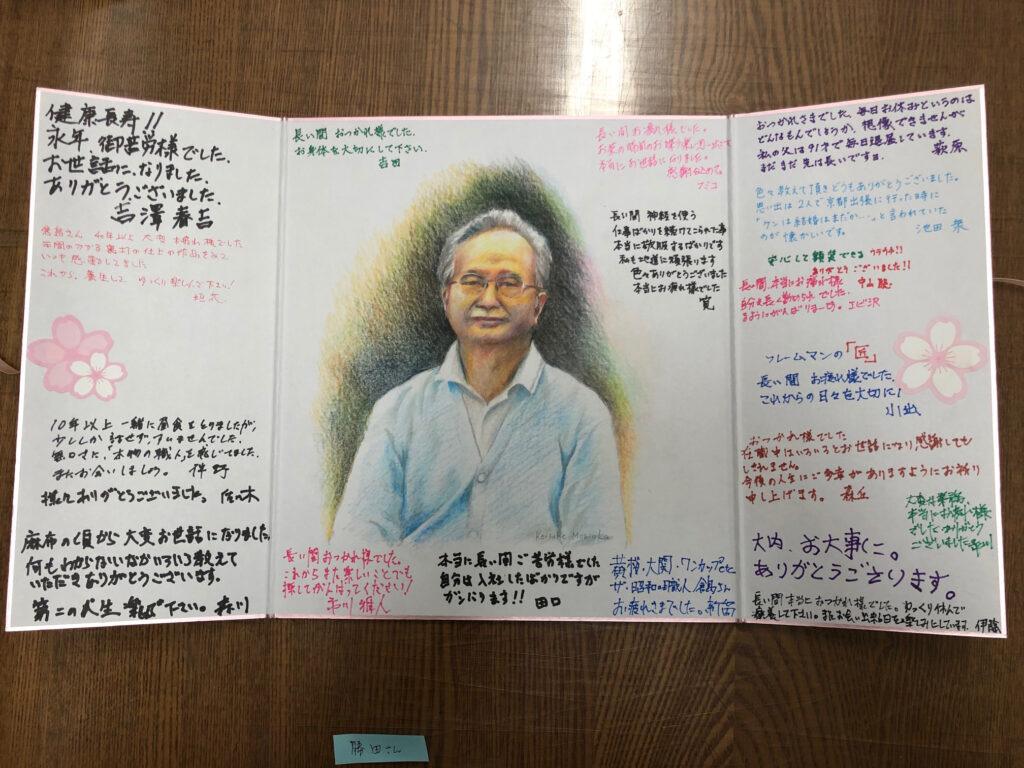 健康長寿!!
永年、御苦労様でした、
お世話に、なりました、
ありがとうございました、
吉澤春吉
さん 40年以上 大変 お疲れ様でした
いつも
これから、養生して ゆっくり楽しんで下さい!
10年以上 一緒に昼食をとりましたが、
少ししか話せず、すみませんでした、
無口さに、「本物の職人」を感じてました、
またお会いしましょう。 伴野
様々ありがとうございました。佐々木
麻布の頃から大変お世話になりました。
何もわからないなかいろいろ教えて
いただきありがとうございます。
第二の人生 楽しんで下さい。 森川
長い間 おつかれ様でした。
お身体を大切にして下さい。
吉田
長い間お疲れ様でした。
本当にお世話になりました。
フミコ
長い間 神経を使う
仕事ばかりを続けてこられた事
本当に敬服するばかりです
私も地道に頑張ります
色々ありがとうございました
本当にお疲れ様でした
寛
Keisuke Morioka
長い間おつかれ様でした。
これからまた楽しいことでも
探してがんばってください!
市川 雅人
本当に長い間ご苦労様でした
自分は入社したばかりですが
ガンバります!! 田口
黄桜・大関・ワンカップ
ザ・昭和の職人
お疲れさまでした。
おつかれさまでした。毎日お休みというのは
どんなもんでしょうか、想像できませんから
私の父は91才で毎日過ごしています。
まだまだ先は長いですヨ。 萩原
色々教えて頂きどうもありがとうございました。
思い出は2人で京都出張に行った時に
「ケンは結婚はまだか…。」と言われていた
のが懐かしいです。 池田
安心して
ありがとうございました!!
長い間、本当にお疲れ様
でした。エビ沢
フレームマンの「匠」
長い間 お疲れ様でした、
これからの日々を大切に!
おつかれ様でした
在職中はいろいろとお世話になり感謝しても
しきれません。
今後の人生にご多幸がありますようにお祈り
申し上げます。 森丘
大変な業務、
本当にお疲れ様
でした ありがとう
ございました
大内、お大事に。
ありがとうござります。
長い間本当におつかれ様でした。ゆっくり休んで
療養して下さい。またお会い出来る日を楽しみにしています、伊藤
勝田さん